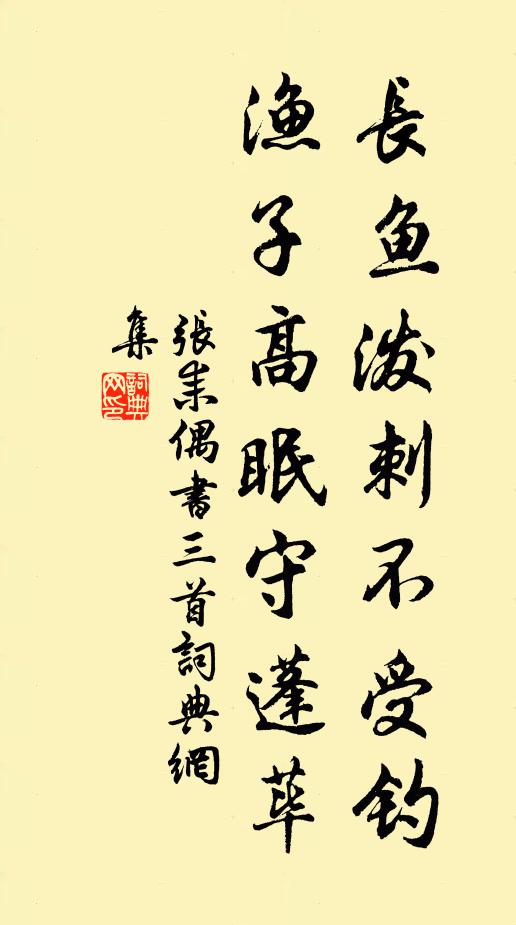 長魚潑刺不受鈎
漁子高眠守蓬蓽
張耒偶書三首詞典網
集
詞典
网印